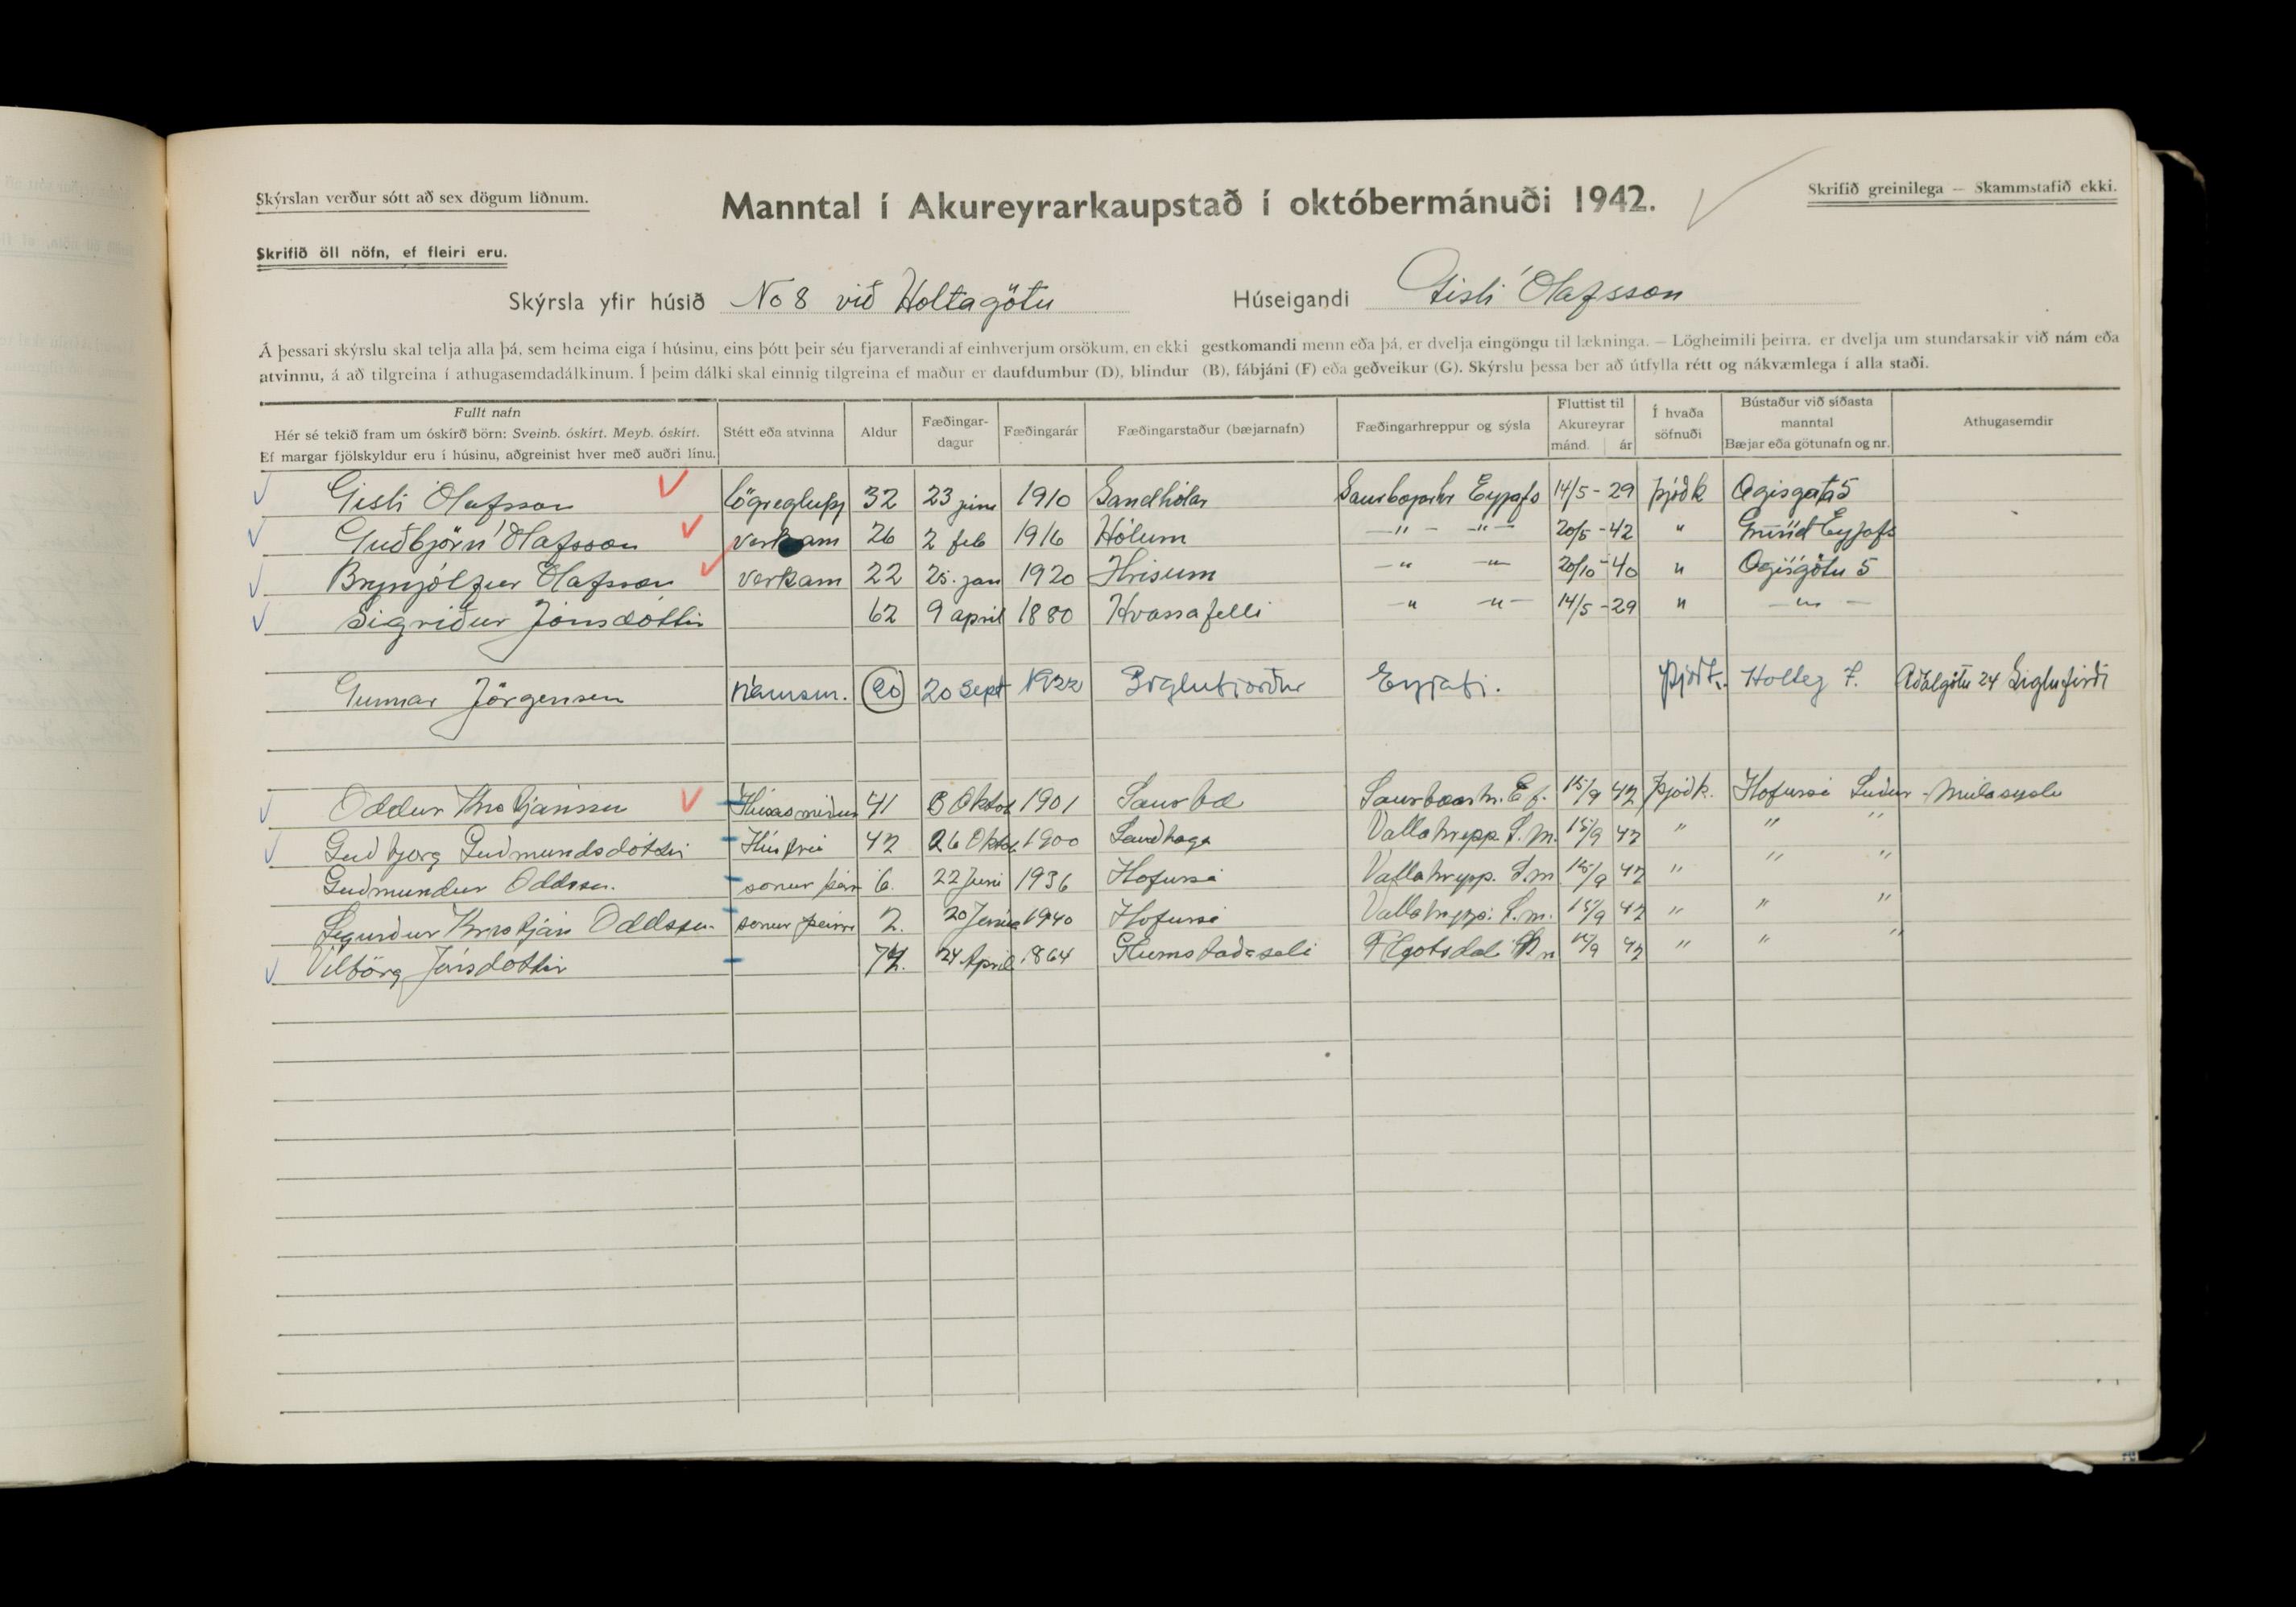 Skýrslan verður sótt að sex dögum liðnum.
Manntal í Akureyrarkaupstað í októbermánuði 1942.
Skrifið greinilega — Skammstafið ekki.
Skrifið öll nöfn, ef fleiri eru.
Skýrsla yfir húsið No 8 við Holtagötu Húseigandi Gísli Ólafsson
Á þessari skýrslu skal telja alla þá, sem heima eiga í húsinu, eins þótt þeir séu fjarverandi af einhverjum orsökum, en ekki gestkomandi menn eða þá, er dvelja eingöngu til lækninga. — Lögheimili þeirra. er dvelja um stundarsakir við nám eða
atvinnu, á að tilgreina í athugasemdadálkinum. Í þeim dálki skal einnig tilgreina ef maður er daufdumbur (D), blindur (B), fábjáni (F) eða geðveikur (G). Skýrslu þessa ber að útfylla rétt og nákvæmlega í alla staði.
Fullt nafn
Hér sé tekið fram um óskírð börn: Sveinb. óskírt. Meyb. óskírt.
Ef margar fjölskyldur eru í húsinu, aðgreinist hver með auðri línu.
Stétt eða atvinna
Aldur
Fæðingar-
dagur
Fæðingarár
Fæðingarstaður (bæjarnafn)
Fæðingarhreppur og sýsla
Fluttist til
Akureyrar
mánd. ár
Í hvaða
söfnuði
Bústaður við síðasta
manntal
Bæjar eða götunafn og nr.
Athugasemdir
Gísli Ólafsson lögregluþj 32 23 júní 1910 Sandhólar Saurbæjarhr Eyjafs 14/5 - 29 þjóðk Ægisgata 5
Guðbjörn Ólafsson verkam 26 2 feb 1916 Hólum —"— —"— 20/5 - 42 " Grund Eyjafs
Brynjólfur Ólafsson verkam 22 25. jan 1920 Hrísum —" —"— 20/10 - 40 " Ægisgötu 5
Sigríður Jónsdóttir 62 9 apríl 1880 Hvassafelli —" —"— 14/5 - 29 " —"—
Gunnar Jörgensen námsm. 20 20 Sept 1922 Siglufjörður Eyjafj. þjóðk. Holtag 7. Aðalgötu 24 Siglufirði
Oddur Kristjánsson Húsasmiður 41 Oktob 1901 Saurbæ Saurbæarhr. Ef. 15/9 42 þjóðk. Hafursá Suður-Múlasyslu
Gudbjorg Gudmundsdóttir Húsfrú 42 26 Oktob 1900 Vallahrepp. S.m. 15/9 42 " " "
Gudmundur Oddsson. sonur þeirr 6. 22 Juni 1936 Hafursá Vallahrepp. S.m 15/9 42 " " "
Sigurdur Kristján Oddsson sonur þeirra 2. 20 1940 Hafursá Vallahrepp. S.m. 15/9 42 " " "
Vilborg Jónsdóttir 24 April 1864 Fljotsdal 15/9 42 " " "